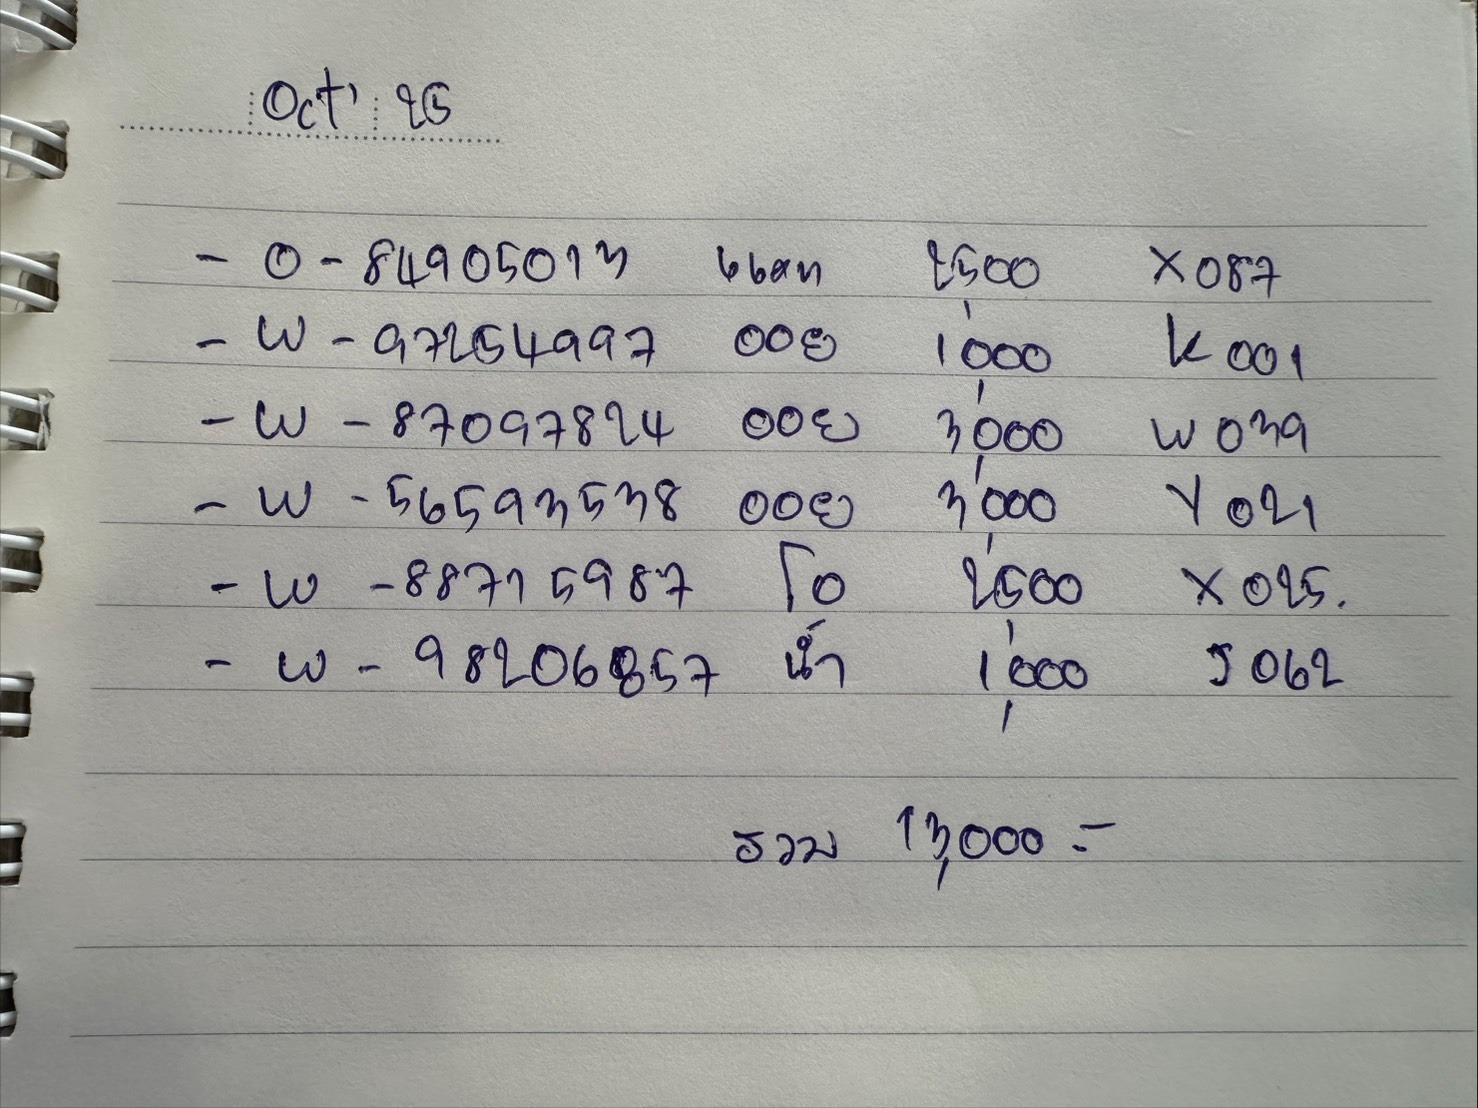 Oct' 25
- O - 84905013 แนท 2,500 X087
- W - 97254997 ออย 1,000 K001
- W - 87097824 ออย 3,000 W039
- W - 56593538 ออย 3,000 Y021
- W - 88715987 โอ 2,500 X025.
- W - 98206857 น้ำ 1,000 J062
รวม 13,000.-